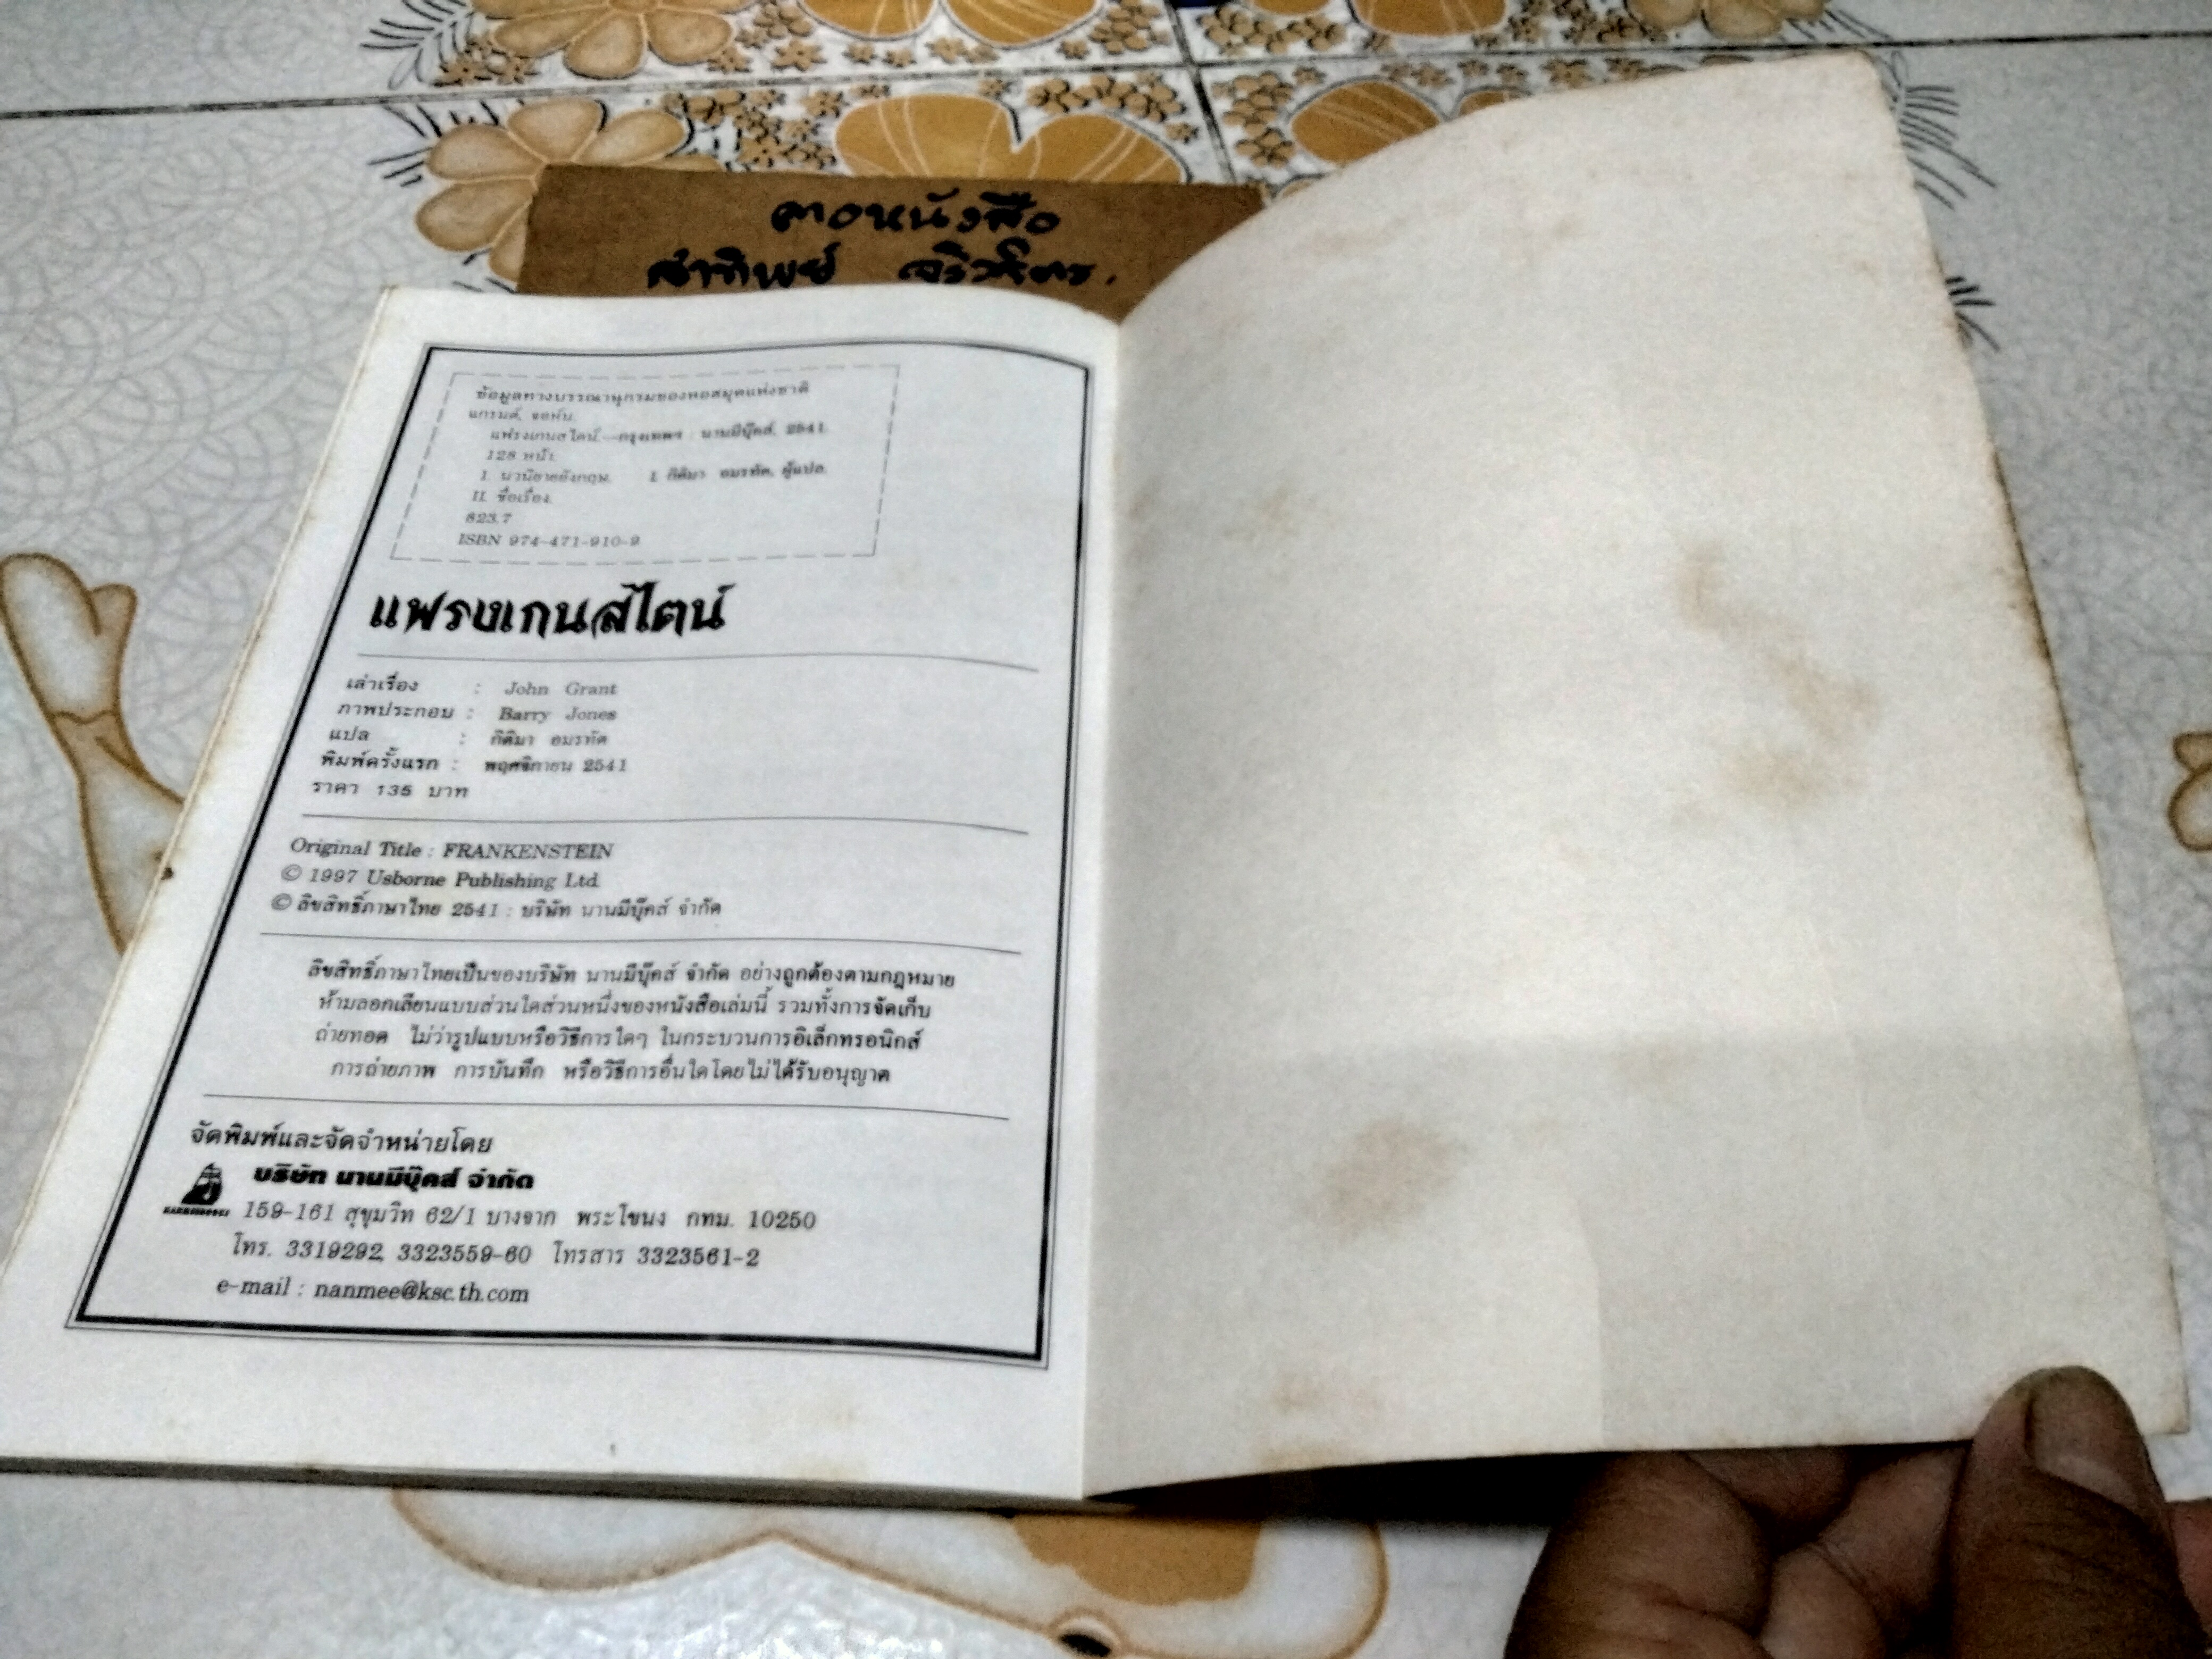 ข้อมูลทางบรรณานุกรมของหอสมุดแห่งชาติ
แกรนต์, จอห์น.
แฟรงเกนสไตน์.--กรุงเทพฯ : นานมีบุ๊คส์, 2541.
128 หน้า.
1. นวนิยายอังกฤษ. I. กิติมา อมรทัต, ผู้แปล.
II. ชื่อเรื่อง.
823.7
ISBN 974-471-910-9
แฟรงเกนสไตน์
เล่าเรื่อง : John Grant
ภาพประกอบ : Barry Jones
แปล : กิติมา อมรทัต
พิมพ์ครั้งแรก : พฤศจิกายน 2541
ราคา 135 บาท
Original Title : FRANKENSTEIN
© 1997 Usborne Publishing Ltd.
© ลิขสิทธิ์ภาษาไทย 2541 : บริษัท นานมีบุ๊คส์ จำกัด
ลิขสิทธิ์ภาษาไทยเป็นของบริษัท นานมีบุ๊คส์ จำกัด อย่างถูกต้องตามกฎหมาย
ห้ามลอกเลียนแบบส่วนใดส่วนหนึ่งของหนังสือเล่มนี้ รวมทั้งการจัดเก็บ
ถ่ายทอด ไม่ว่ารูปแบบหรือวิธีการใดๆ ในกระบวนการอิเล็กทรอนิกส์
การถ่ายภาพ การบันทึก หรือวิธีการอื่นใดโดยไม่ได้รับอนุญาต
จัดพิมพ์และจัดจำหน่ายโดย
บริษัท นานมีบุ๊คส์ จำกัด
NANMEEBOOKS
159-161 สุขุมวิท 62/1 บางจาก พระโขนง กทม. 10250
โทร. 3319292, 3323559-60 โทรสาร 3323561-2
e-mail : nanmee@ksc.th.com